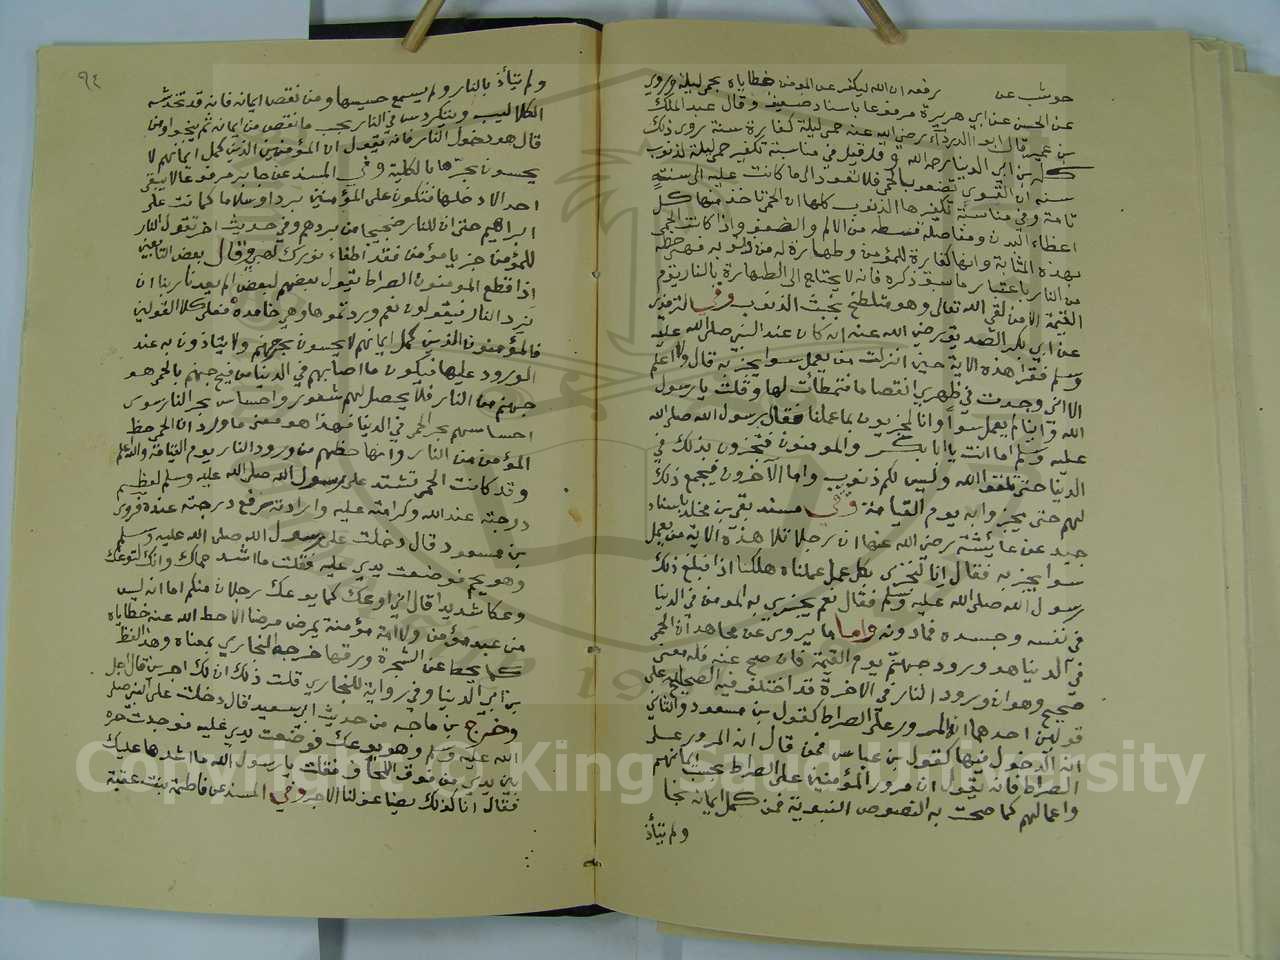 حوشب عن رفعه ان الله ليكفر عن المومن خطاياه بحمى ليلة وروي
عن الحسن عن ابي هريرة مرفوعا باسناد ضعيف وقال عبد الملك
بن عمير قال ابو الدرداء رضي الله عنه حمى ليلة كفارة سنة يروى ذلك
كله بن ابي الدنيا رحمه الله وقد قيل في مناسبة تكفير حمى ليلة لذنوب
سنة ان القوى تضعف بالحمى فلا تعود الى ما كانت عليه الى سنة
تامة وفي مناسبة تكفيرها الذنوب كلها ان الحمى تاخذ منها كل
اعضاء البدن ومفاصله قسطه من الالم والضعف واذا كانت الحمى
بهذه المثابة وانها كفارة للمؤمن وطهارة له من ذنوبه فهي حظه
من النار باعتبار ما سبق ذكره فانه لا يحتاج الى الطهارة بالنار يوم
القيمة الا من لقي الله تعالى وهو متلطخ بخبث الذنوب وفي الترمذي
عن ابي بكر الصديق رضي الله عنه انه كان عند النبي صلى الله عليه
وسلم فقرا هذه الاية حين انزلت من يعمل سوا يجز به قال ولا اعلم
الا اني وجدت في ظهري انقصاما فتمطأت لها وقلت يا رسول
الله واينا لم يعمل سوأ وانا لمجزيون بما عملنا فقال رسول الله صلى الله
عليه وسلم اما انت يا ابا بكر والمومنون فتجزون بذلك في
الدنيا حتى تلقوا الله وليس لكم ذنوب واما الآخرون فيجمع ذلك
لهم حتى يجيزوا به يوم القيامة وفي مسند بقي بن مخلد باسناد
جيد عن عايشة رضي الله عنها ان رجلا تلا هذه الاية من يعمل
سوا يجز به فقال انا لنجزى بكل عمل عملناه هلكنا اذا فبلغ ذلك
رسول الله صلى الله عليه وسلم فقال نعم يجزي به المومن في الدنيا
في نفسه وجسده فما دونه واما ما يروى عن مجاهد ان الحمى
في الدنيا هو ورود جهنم يوم القيمة فان صح عنه فله معنى
صحيح وهو ان ورود النار في الاخرة قد اختلف فيه الصحابه على
قولين احدهما انه المرور على الصراط كقول بن مسعود والثاني
انه الدخول فيها كقول بن عباس فمن قال انه المرور على
الصراط فانه يقول ان مرور المؤمنين على الصراط بحسب ايمانهم
واعمالهم كما صحت به النصوص النبوية فمن كمل ايمانه نجا
ولم يتأذ
٩٤
ولم يتأذ بالنار ولم يسمع حسيسها ومن نقص ايمانه فانه قد تخدشه
الكلاليب ويتكردس في النار بحسب ما نقص من ايمانه ثم ينجوا ومن
قال هو دخول النار فانه يقول ان المؤمنين الذين كمل ايمانهم لا
يحسون بحرها بالكلية وفي المسند عن جابر مرفوعا لا يبقى
احد الا دخلها فتكون على المؤمنين بردا وسلاما كما كانت على
ابراهيم حتى ان للنار ضجيجا من بردهم وفي حديث اخر تقول النار
للمؤمن جز يا مؤمن فقد اطفاء نورك لهبي وقال بعض التابعين
اذا قطع المومنون الصراط يقول بعضهم لبعض الم يعدنا ربنا ان
نرد النار فيقولون نعم وردتموها وهي خامدة فعلى كلا القولين
فالمؤمنون الذين كمل ايمانهم لا يحسون بحر جهنم ولا يتاذون به عند
الورود عليها فيكون ما اصابهم في الدنيا من فيح جهنم بالحمى هو
حظهم من النار فلا يحصل لهم شعور واحساس بحر النار سوى
احساسهم بحر الحمى في الدنيا فهذا هو معنى ما ورد ان الحمى حظ
المؤمن من النار وانها حظهم من ورود النار يوم القيامة والله اعلم
وقد كانت الحمى تشتد على رسول الله صلى الله عليه وسلم لعظيم
درجته عند الله وكرامته عليه وارادته رفع درجته عنده فروى
بن مسعود قال دخلت على رسول الله صلى الله عليه وسلم
وهو يحم فوضعت يدي عليه فقلت ما اشد حماك وانك لتوعك
وعكا شديدا قال اني اوعك كما يوعك رجلان منكم اما انه ليس
من عبد مؤمن ولا امة مؤمنة يمرض مرضا الا حط الله عنه خطاياه
كما يحط عن الشجرة ورقها خرجه البخاري بمعناه وهذا لفظ
بن ابي الدنيا وفي رواية للبخاري قلت ذلك ان لك اجرين قال اجل
وخرج بن ماجه من حديث ابي سعيد قال دخلت على النبي صلى
الله عليه وسلم وهو يوعك فوضعت يدي عليه فوجدت حره
بين يدي من فوق اللحاف فقلت يا رسول الله ما اشدها عليك
فقال انا كذلك يضاعف لنا الاجر وفي المسند عن فاطمة بنت عتبة
Copyright © King Saud University